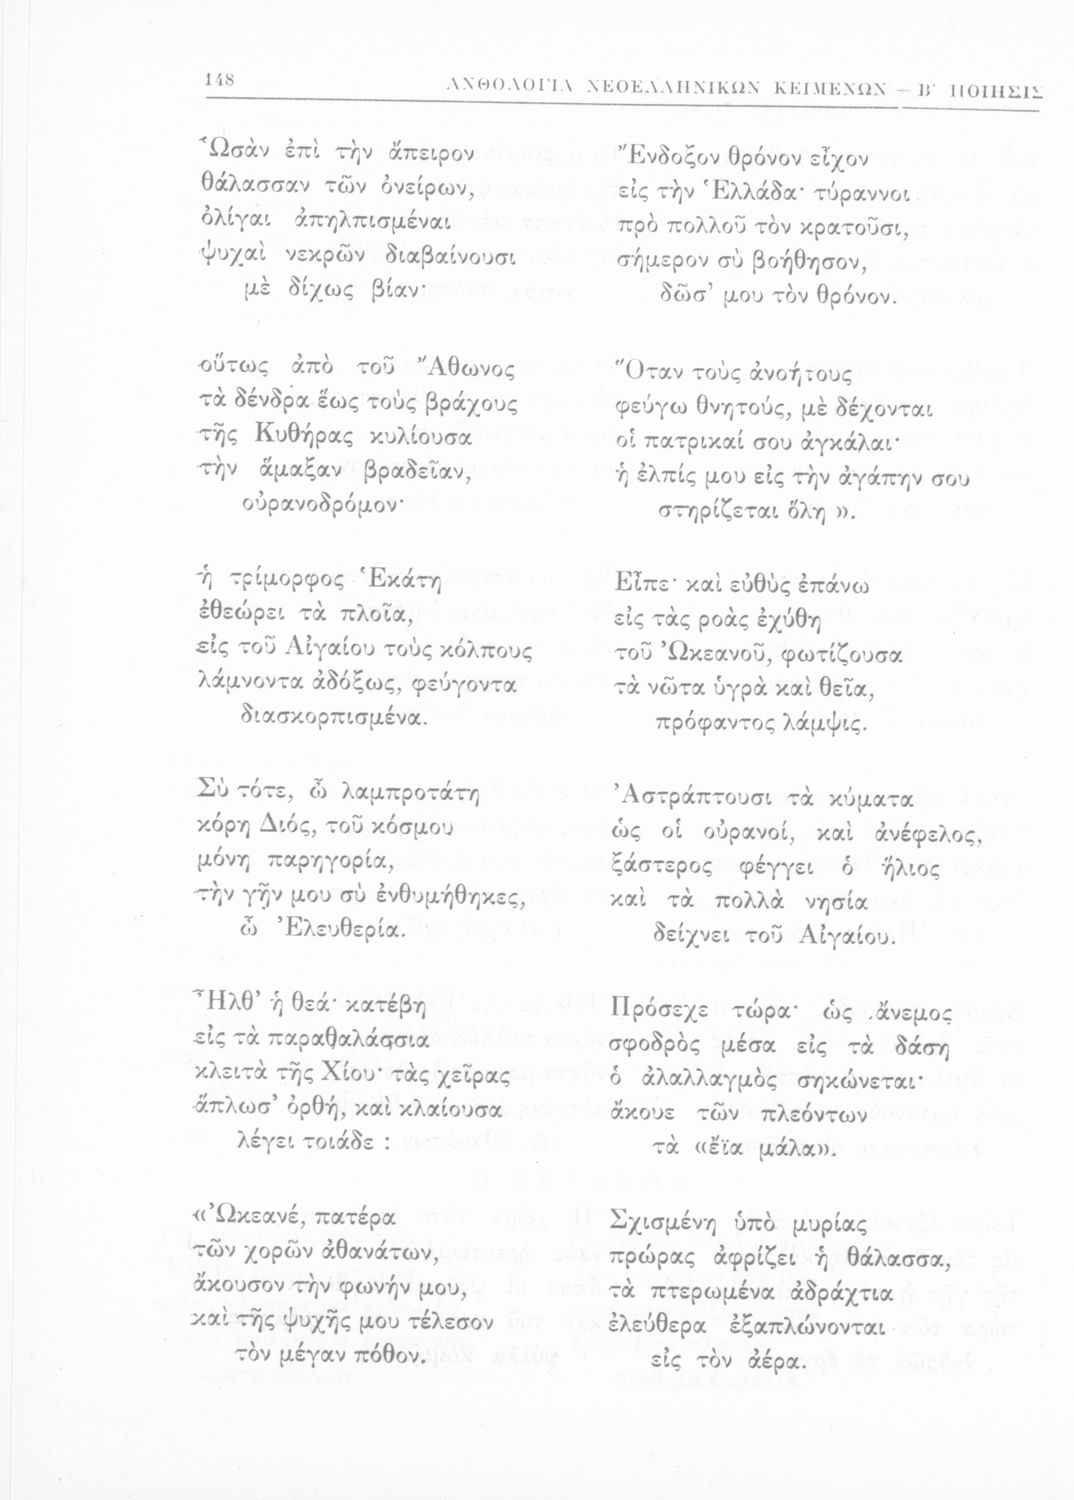 148
ΑΝΘΟΛΟΓΙΑ ΝΕΟΕΛΛΗΝΙΚΩΝ ΚΕΙΜΕΝΩΝ — Β΄ ΠΟΙΗΣΙΣ
Ὡσὰν ἐπὶ τὴν ἄπειρον
θάλασσαν τῶν ὀνείρων,
ὀλίγαι ἀπηλπισμέναι
ψυχαὶ νεκρῶν διαβαίνουσι
μὲ δίχως βίαν·
οὕτως ἀπὸ τοῦ Ἄθωνος
τὰ δένδρα ἕως τοὺς βράχους
τῆς Κυθήρας κυλίουσα
τὴν ἅμαξαν βραδεῖαν,
οὐρανοδρόμον·
ἡ τρίμορφος Ἑκάτη
ἐθεώρει τὰ πλοῖα,
εἰς τοῦ Αἰγαίου τοὺς κόλπους
λάμνοντα ἀδόξως, φεύγοντα
διασκορπισμένα.
Σὺ τότε, ὦ λαμπροτάτη
κόρη Διός, τοῦ κόσμου
μόνη παρηγορία,
τὴν γῆν μου σὺ ἐνθυμήθηκες,
ὦ Ἐλευθερία.
Ἦλθ’ ἡ θεά· κατέβη
εἰς τὰ παραθαλάσσια
κλειτὰ τῆς Χίου· τὰς χεῖρας
ἅπλωσ’ ὀρθή, καὶ κλαίουσα
λέγει τοιάδε :
«Ὠκεανέ, πατέρα
τῶν χορῶν ἀθανάτων,
ἄκουσον τὴν φωνήν μου,
καὶ τῆς ψυχῆς μου τέλεσον
τὸν μέγαν πόθον.
Ἔνδοξον θρόνον εἶχον
εἰς τὴν Ἑλλάδα· τύραννοι
πρὸ πολλοῦ τὸν κρατοῦσι,
σήμερον σὺ βοήθησον,
δῶσ’ μου τὸν θρόνον.
Ὅταν τοὺς ἀνοήτους
φεύγω θνητούς, μὲ δέχονται
οἱ πατρικαί σου ἀγκάλαι·
ἡ ἐλπίς μου εἰς τὴν ἀγάπην σου
στηρίζεται ὅλη ».
Εἶπε· καὶ εὐθὺς ἐπάνω
εἰς τὰς ροὰς ἐχύθη
τοῦ Ὠκεανοῦ, φωτίζουσα
τὰ νῶτα ὑγρὰ καὶ θεῖα,
πρόφαντος λάμψις.
Ἀστράπτουσι τὰ κύματα
ὡς οἱ οὐρανοί, καὶ ἀνέφελος,
ξάστερος φέγγει ὁ ἥλιος
καὶ τὰ πολλὰ νησία
δείχνει τοῦ Αἰγαίου.
Πρόσεχε τώρα· ὡς ἄνεμος
σφοδρὸς μέσα εἰς τὰ δάση
ὁ ἀλαλλαγμὸς σηκώνεται·
ἄκουε τῶν πλεόντων
τὰ «ἔϊα μάλα».
Σχισμένη ὑπὸ μυρίας
πρώρας ἀφρίζει ἡ θάλασσα,
τὰ πτερωμένα ἀδράχτια
ἐλεύθερα ἐξαπλώνονται
εἰς τὸν ἀέρα.